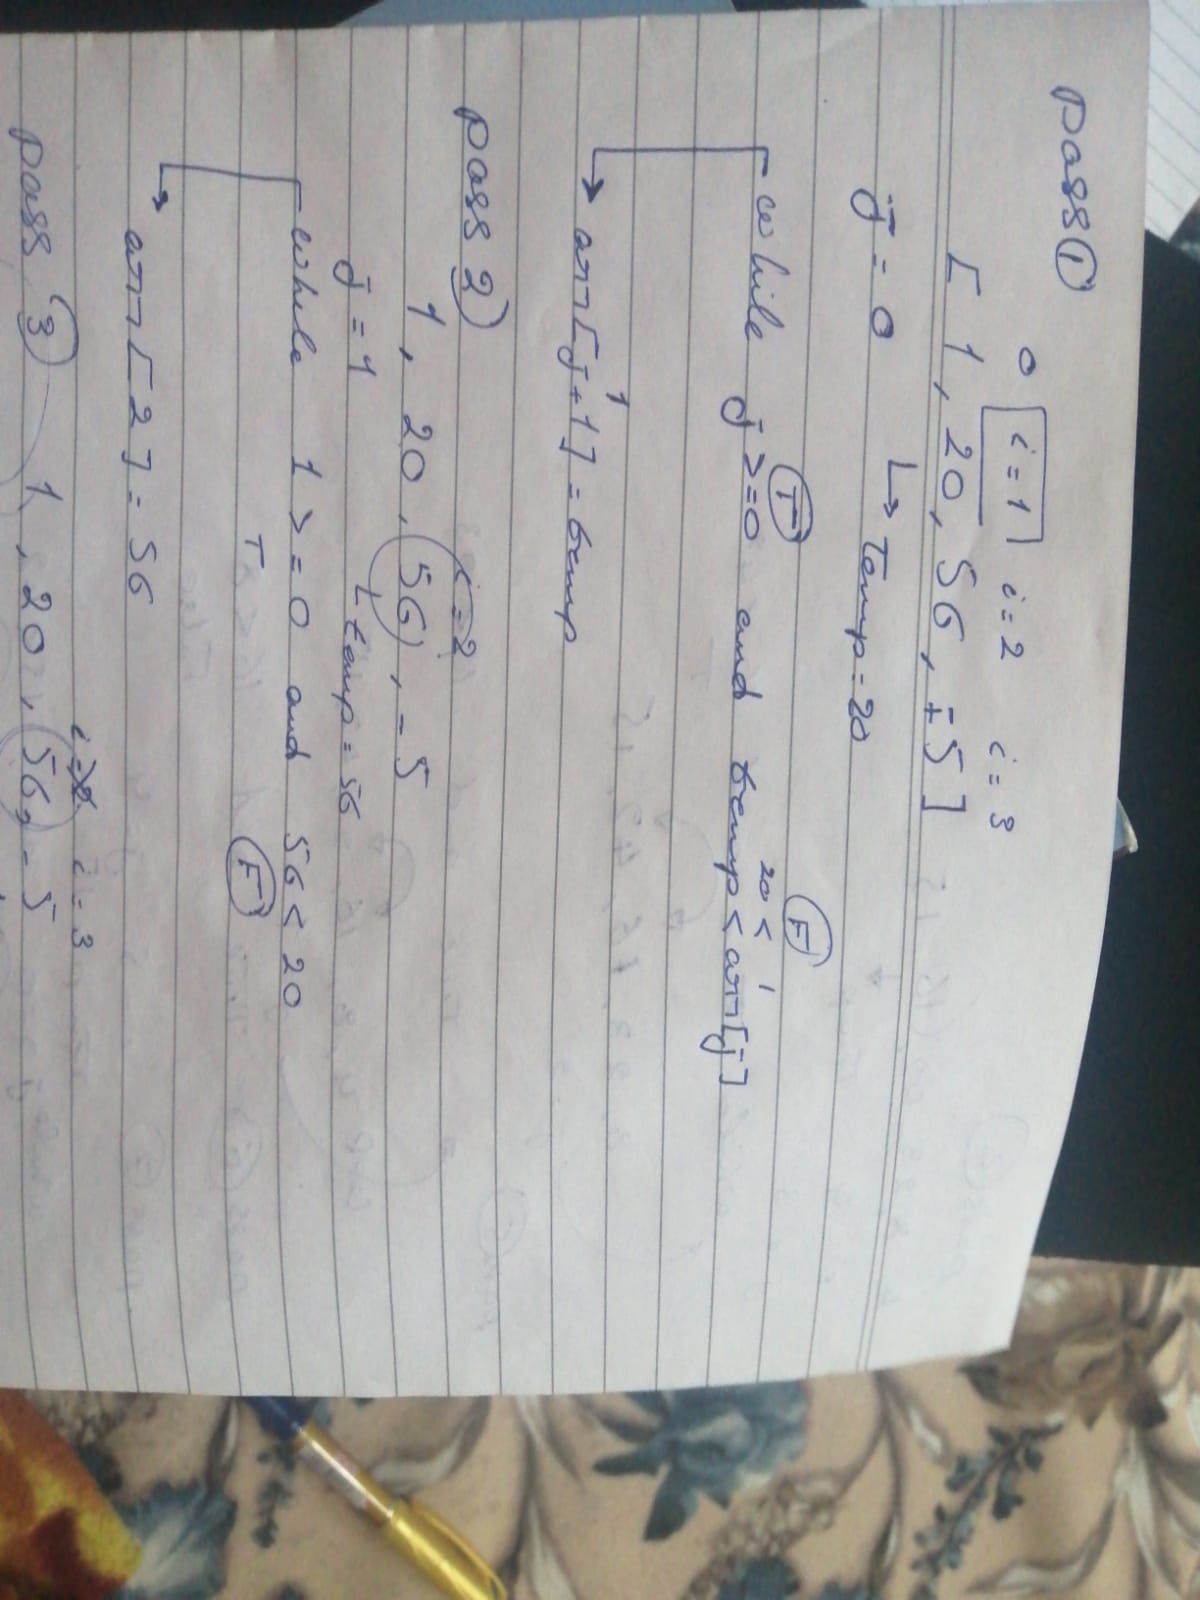 Pass ①
0 i=1 i=2 i=3
[ 1, 20, 56, -5 ]
j = 0 ↳ Temp = 20
T 20 < 1 F
while j >= 0 and temp < arr[j]
1
→ arr[j+1] = temp
Pass 2) i=2
1, 20, 56, -5
j = 1 temp = 56
while 1 >= 0 and 56 < 20
T F
→ arr[2] = 56
i=3
Pass 3 1, 20, 56, -5